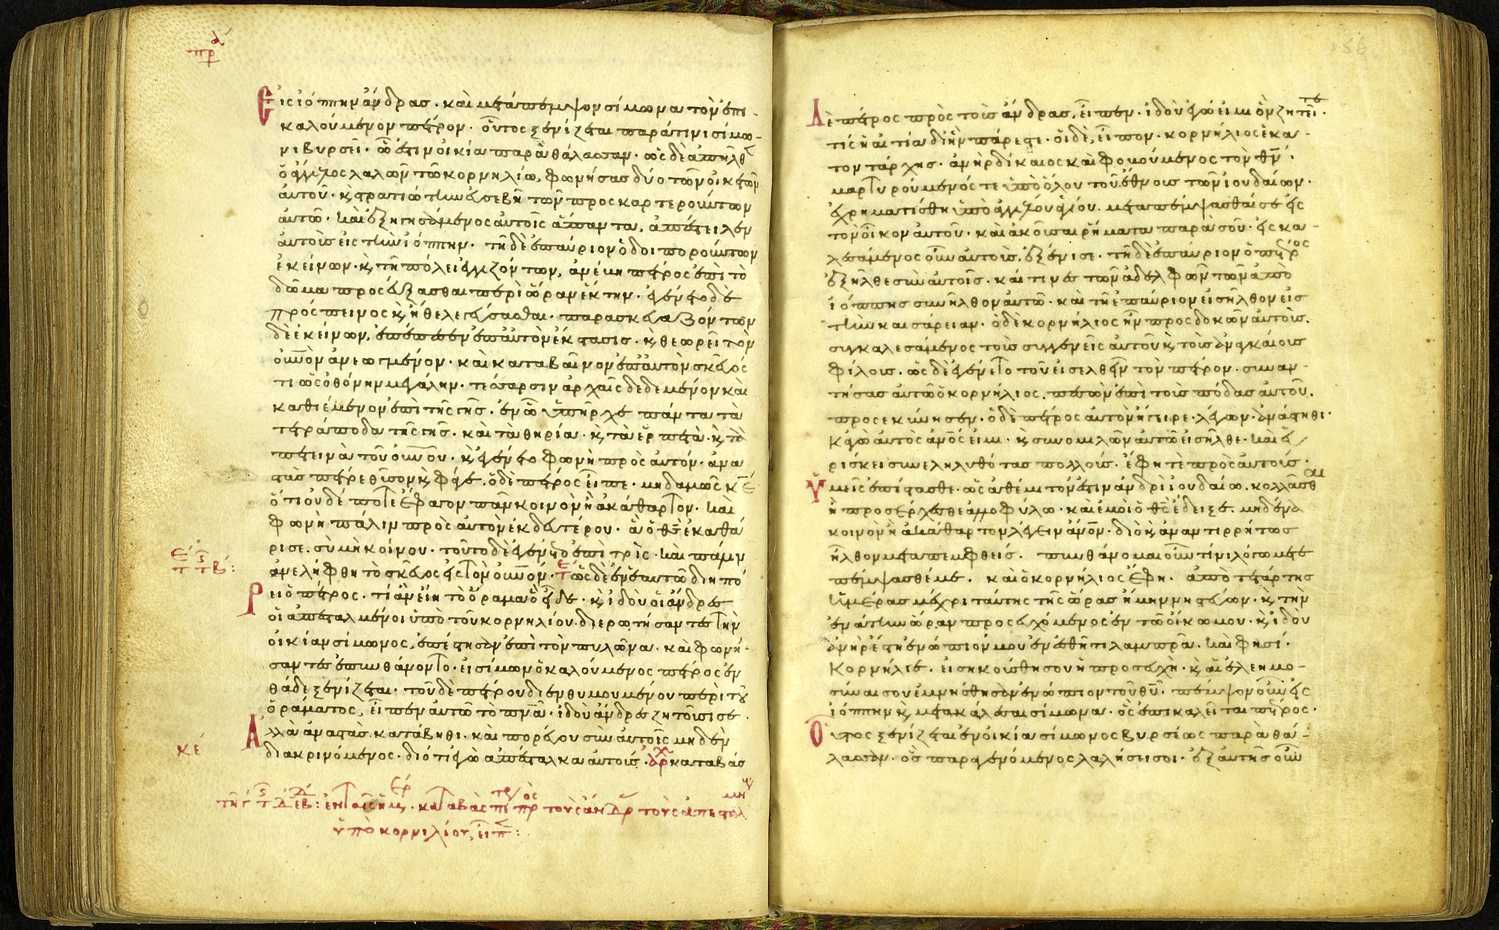 πρ
Εἰς ἰόππην ἄνδρας· καὶ μετάπεμψον σίμωνα τὸν ἐπι-
καλούμενον πέτρον· οὗτος ξενίζεται παρά τινι σίμω-
νι βυρσεῖ· ὧ ἐστιν οἰκία παρὰ θάλασσαν· ὡς δὲ ἀπῆλθε
ὁ ἄγγελος λαλῶν τῶ κορνηλίω, φωνήσας δύο τῶν οἰκετῶν
αὐτοῦ· κ̀ στρατιώτην εὐσεβῆ τῶν προσκαρτερούντων
αὐτῶ· καὶ ἐξηγησάμενος αὐτοῖς ἅπαντα, ἀπέστειλεν
αὐτοὺς εἰς τὴν ἰόππην· τῆ δὲ ἐπαύριον ὁδοιπορούντων
ἐκείνων· κ̀ τῆ πόλει ἐγγιζόντων, ἀνέβη πέτρος ἐπὶ τὸ
δῶμα προσεύξασθαι περὶ ὥραν ἕκτην· ἐγένετο δὲ
πρόσπεινος κ̀ ἤθελε γεύσασθαι· παρασκευαζόντων
δὲ ἐκείνων, ἐπέπεσεν ἐπ' αὐτὸν ἔκστασις· κ̀ θεωρεῖ τὸν
οὐνὸν ἀνεωγμένον· καὶ καταβαῖνον ἐπ' αὐτὸν σκεῦός
τι ὡς ὀθόνην μεγάλην· τέσσαρσιν ἀρχαῖς δεδεμένον καὶ
καθιέμενον ἐπὶ τῆς γῆς· ἐν ὧ ὑπῆρχε πάντα τὰ
τετράποδα τῆς γῆς· καὶ τὰ θηρία· κ̀ τὰ ἑρπετὰ· κ̀ τὰ
πετεινὰ τοῦ οὐνου· κ̀ ἐγένετο φωνὴ πρὸς αὐτόν· ἀνα
στὰς πέτρε θῦσον κ̀ φάγε. ὁ δὲ πέτρος εἶπε· μηδαμῶς κε
ὅτι οὐδέποτε ἔφαγον πᾶν κοινὸν ἢ ἀκάθαρτον· καὶ
φωνὴ πάλιν πρὸς αὐτὸν ἐκ δευτέρου· ἃ ὁ θς ἐκαθά
ρισε. σὺ μὴ κοίνου· τοῦτο δὲ ἐγένετο ἐπὶ τρίς· καὶ πάλιν
ἀνελήφθη τὸ σκεῦος εἰς τὸν οὐνόν· ὡς δὲ ἐν ἑαυτῶ διηπό
ρει ὁ πέτρος· τί ἂν εἴη τὸ ὅραμα ὃ εἶδε· κ̀ ἰδοὺ οἱ ἄνδρες
οἱ ἀπεσταλμένοι ὑπὸ τοῦ κορνηλίου. διερωτήσαντες τὴν
οἰκίαν σίμωνος, ἐπέστησαν ἐπὶ τὸν πυλῶνα· καὶ φωνή-
σαντες ἐπυνθάνοντο· εἰ σίμων ὁ καλούμενος πέτρος ἐν
θάδε ξενίζεται· τοῦ δὲ πέτρου διενθυμουμένου περὶ τοῦ
ὁράματος, εἶπεν αὐτῶ τὸ πνα· ἰδοὺ ἄνδρες ζητοῦσί σε·
Ἀλλὰ ἀναστὰς κατάβηθι· καὶ πορεύου σὺν αὐτοῖς μηδὲν
διακρινόμενος· διότι ἐγὼ ἀπέσταλκα αὐτούς· καταβὰς
κε
καταβὰς πρ τοὺς ἄνδρ τοὺς ἀπεσταλμ
ὑπὸ κορνιλίου, εἶπ:
Δὲ πέτρος πρὸς τοὺς ἄνδρας, εἶπεν· ἰδοὺ ἐγώ εἰμι ὃν ζητεῖτε·
τίς ἡ αἰτία δι' ἣν πάρεστε· οἱ δὲ, εἶπον· κορνήλιος ἑκα-
τοντάρχης· ἀνὴρ δίκαιος καὶ φοβούμενος τὸν θν·
μαρτυρούμενός τε ὑπὸ ὅλου τοῦ ἔθνους τῶν ἰουδαίων·
ἐχρηματίσθη ὑπὸ ἀγγέλου ἁγίου. μεταπέμψασθαί σε εἰς
τὸν οἶκον αὐτοῦ· καὶ ἀκοῦσαι ῥήματα παρὰ σοῦ· εἰσκα-
λεσάμενος οὖν αὐτοὺς, ἐξένισε· τῆ δὲ ἐπαύριον ὁ πέτρος
ἐξῆλθε σὺν αὐτοῖς· καί τινες τῶν ἀδελφῶν τῶν ἀπὸ
ἰόππης συνῆλθον αὐτῶ· καὶ τῆ ἐπαύριον εἰσῆλθον εἰς
τὴν καισάρειαν· ὁ δὲ κορνήλιος ἦν προσδοκῶν αὐτοὺς.
συγκαλεσάμενος τοὺς συγγενεῖς αὐτοῦ κ̀ τοὺς ἀναγκαίους
φίλους. ὡς δὲ ἐγένετο τοῦ εἰσελθεῖν τὸν πέτρον· συναν-
τήσας αὐτῶ ὁ κορνήλιος, πεσὼν ἐπὶ τοὺς πόδας αὐτοῦ.
προσεκύνησεν· ὁ δὲ πέτρος αὐτὸν ἤγειρε· λέγων· ἀνάστηθι·
κἀγὼ αὐτὸς ἄνός εἰμι· κ̀ συνομιλῶν αὐτῶ εἰσῆλθε· καὶ εὑ
ρίσκει συνεληλυθότας πολλούς· ἔφη τε πρὸς αὐτούς·
Ὑμεῖς ἐπίστασθε· ὡς ἀθέμιτόν ἐστιν ἀνδρὶ ἰουδαίω. κολλᾶσθαι
ἢ προσέρχεσθαι ἀλλοφύλω· καὶ ἐμοὶ ὁ θς ἔδειξε· μηδένα
κοινὸν ἢ ἀκάθαρτον λέγειν ἄνον· διὸ κ̀ ἀναντιρρήτως
ἦλθον μεταπεμφθείς· πυνθάνομαι οὖν τίνι λόγω μετε
πέμψασθέ με· καὶ ὁ κορνήλιος ἔφη· ἀπὸ τετάρτης
ἡμέρας μέχρι ταύτης τῆς ὥρας ἤμην νηστεύων· κ̀ τὴν
ἐνάτην ὥραν προσευχόμενος ἐν τῶ οἴκω μου· κ̀ ἰδοὺ
ἀνὴρ ἔστη ἐνώπιόν μου ἐν ἐσθῆτι λαμπρᾶ· καὶ φησί·
Κορνήλιε· εἰσηκούσθη σου ἡ προσευχή· κ̀ αἱ ἐλεημο-
σύναι σου ἐμνήσθησαν ἐνώπιον τοῦ θυ· πέμψον οὖν εἰς
ἰόππην κ̀ μετακάλεσαι σίμωνα· ὃς ἐπικαλεῖται πέτρος·
Οὗτος ξενίζεται ἐν οἰκία σίμωνος βυρσέως παρὰ θά-
λασσαν· ὃς παραγενόμενος λαλήσει σοι· ἐξαυτῆς οὖν